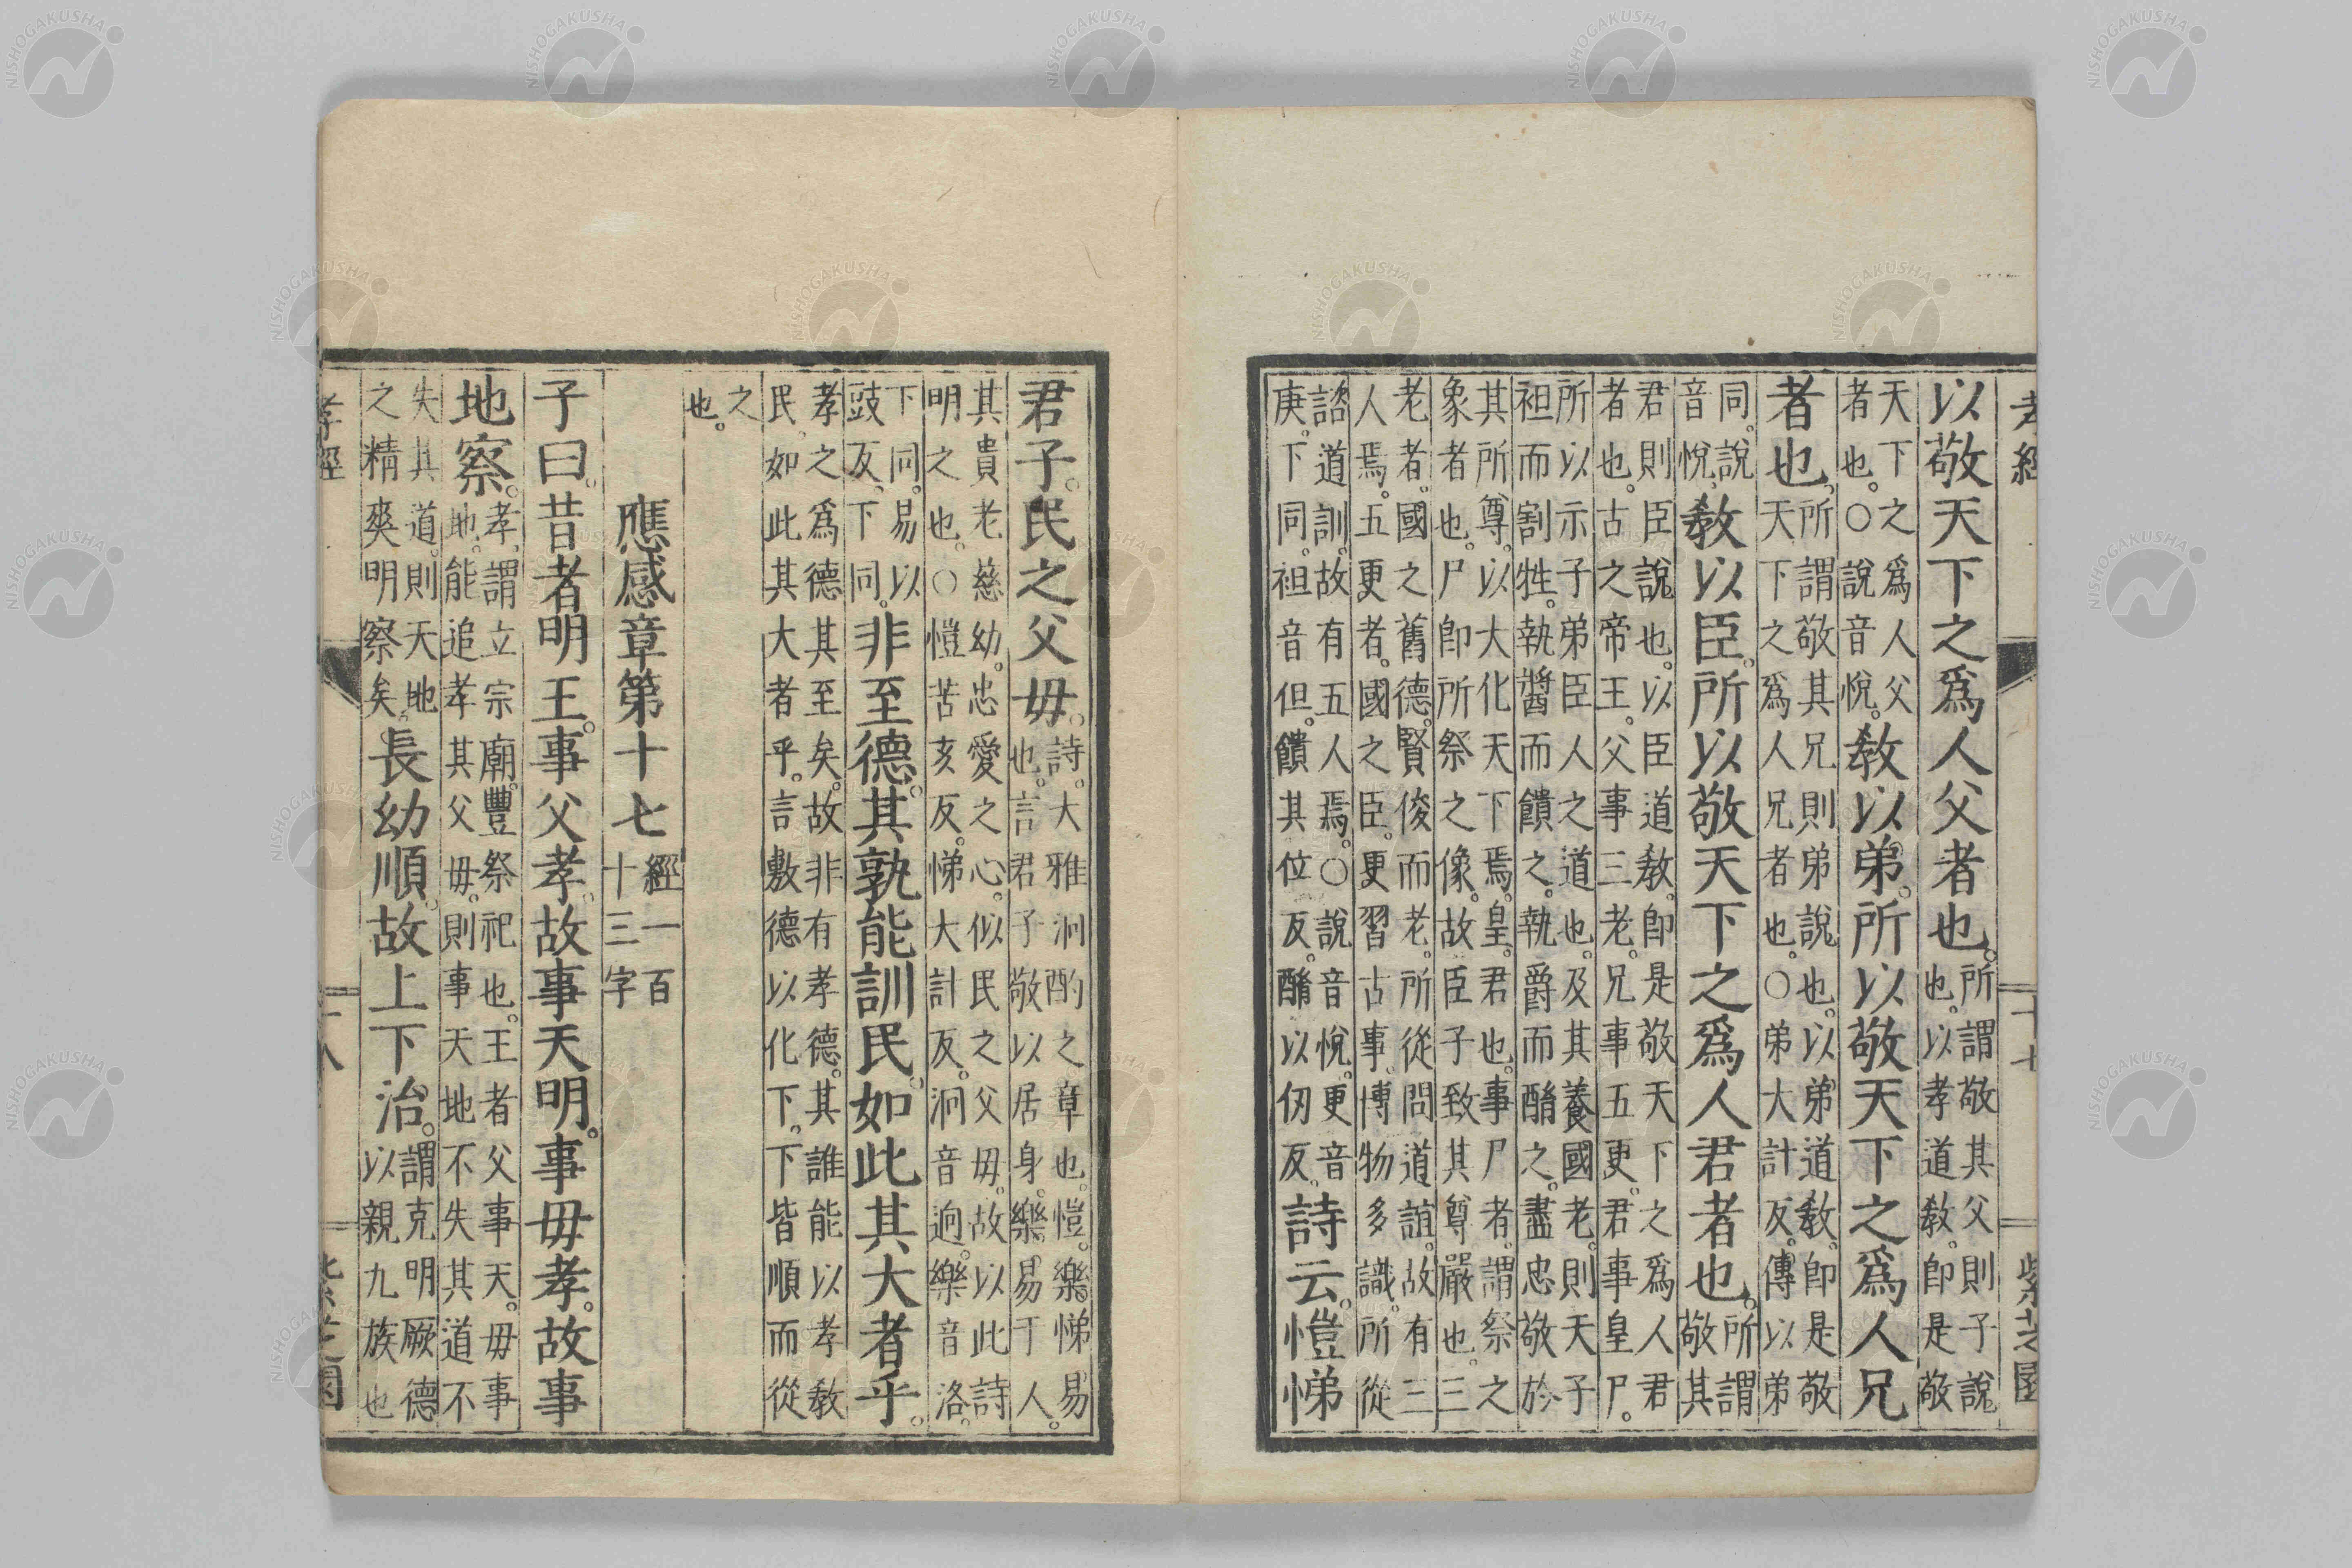 孝經 十七 紫芝園
以敬天下之爲人父者也。所謂敬其父則子說
也。以孝道敎。卽是敬
天下之爲人父
者也。○說音悅。敎以弟。所以敬天下之爲人兄
者也。所謂敬其兄則弟說也。以弟道敎。卽是敬
天下之爲人兄者也。○弟大計反。傳以弟
同。說
音悅。敎以臣。所以敬天下之爲人君者也。所謂
敬其
君則臣說也。以臣道敎。卽是敬天下之爲人君
者也。古之帝王。父事三老。兄事五更。君事皇尸。
所以示子弟臣人之道也。及其養國老。則天子
袒而割牲。執醬而饋之。執爵而酳之。盡忠敬於
其所尊。以大化天下焉。皇。君也。事尸者。謂祭之
象者也。尸卽所祭之像。故臣子致其尊嚴也。三
老者。國之舊德。賢俊而老。所從問道誼。故有三
人焉。五更者。國之臣。更習古事。博物多識。所從
諮道訓。故有五人焉。○說音悅。更音
庚。下同。袒音但。饋其位反。酳以刃反。詩云。愷悌
君子。民之父毋。詩。大雅泂酌之章也。愷。樂。悌易
也。言君子敬以居身。樂易于人。
其貴老慈幼。忠愛之心。似民之父毋。故以此詩
明之也。○愷苦亥反。悌大計反。泂音逈。樂音洛。
下同。易以
豉反。下同。非至德。其孰能訓民。如此其大者乎。
孝之爲德其至矣。故非有孝德。其誰能以孝敎
民。如此其大者乎。言敷德以化下。下皆順而從
之
也。
應感章第十七 經一百
十三字
子曰。昔者明王。事父孝。故事天明。事毋孝。故事
地察。孝。謂立宗廟。豐祭祀也。王者父事天。毋事
地。能追孝其父毋。則事天地不失其道。不
失其道。則天地
之精爽明察矣。長幼順。故上下治。謂克明厥德
以親九族也
孝經 十八 紫芝園
NISHOGAKUSHA